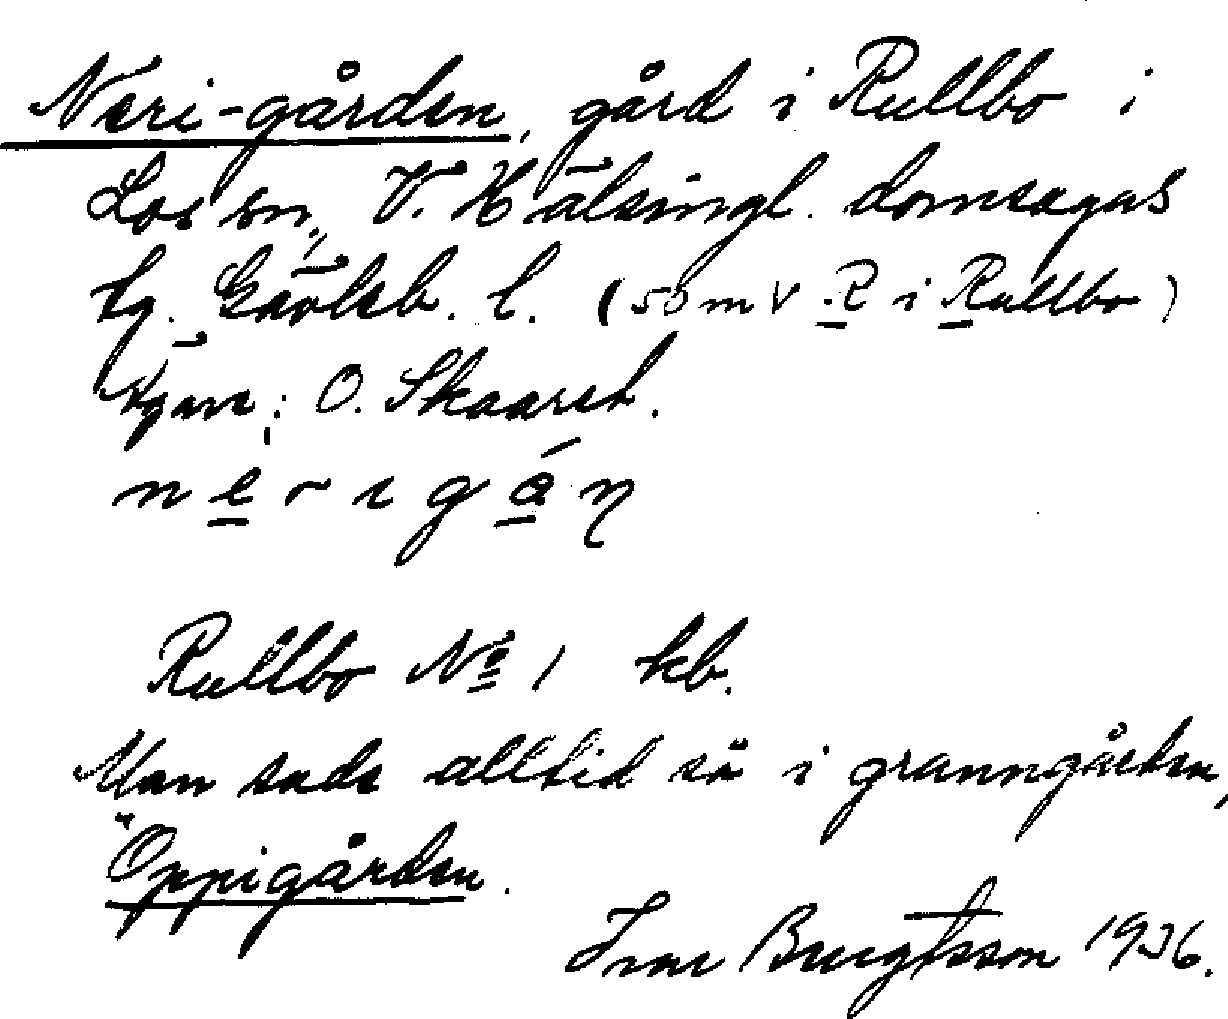 Neri-gården, gård i Rullbo i
Los sn, V. Hälsingl. domsagas
tg. Gävleb. l. (50 m V R i Rullbo)
Ägare: O. Skaaret.
n e r ı g á ŋ
Rullbo Nº 1 kb.
Man sade alltid så i granngården,
Öppigården.
Ivar Bengtsson 1936.